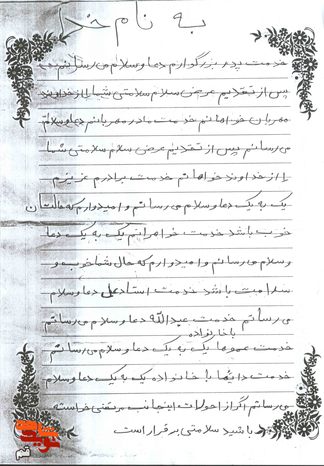 به نام خدا
خدمت پدر بزرگوارم دعا و سلام می رسانم
پس از تقدیم عرض سلام سلامتی شما را از خداوند
مهربان خواهانم خدمت مادر مهربانم دعا و سلام
می رسانم پس از تقدیم عرض سلام سلامتی شما
را از خداوند خواهانم خدمت برادرم عزیزم
یک به یک دعا و سلام می رسانم و امیدوارم که حالتان
خوب باشد خدمت خواهرانم یک به یک دعا
و سلام می رسانم و امیدوارم که حال شما خوب و
سلامت باشد خدمت استاد علی دعا و سلام
می رسانم خدمت عبدالله دعا و سلام می رسانم
با خانواده
خدمت عموها یک به یک دعا و سلام می رسانم
خدمت دایی ها با خانواده یک به یک دعا و سلام
می رسانم اگر از احوالات اینجانب مرتضی خواسته
باشید سلامتی برقرار است